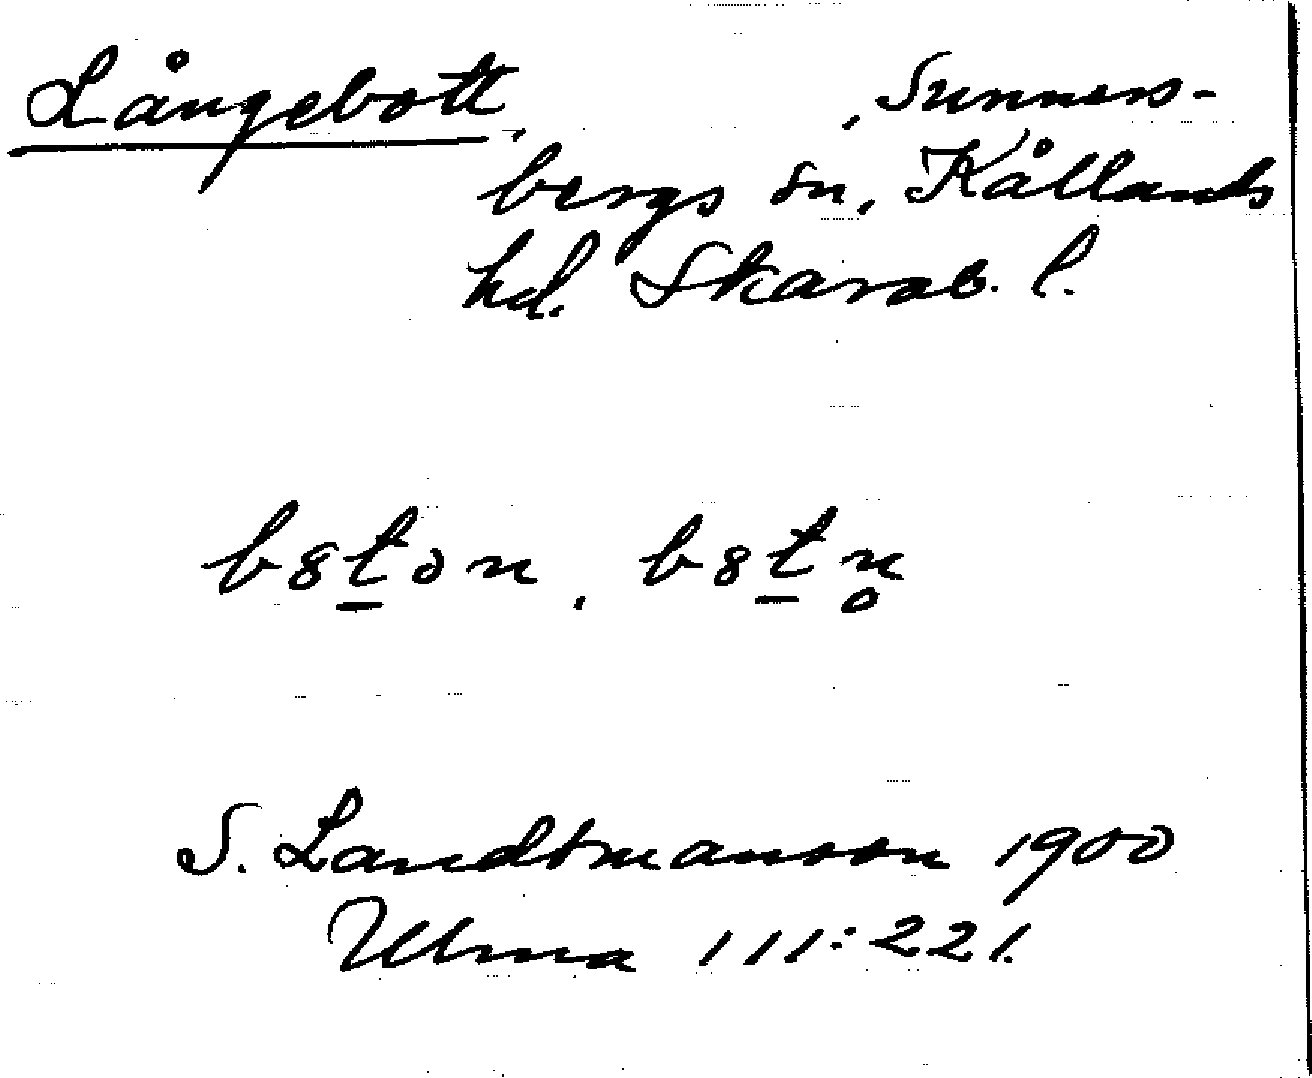 Långebott, , Sunners-
bergs sn, Kållands
hd. Skarab. l.
b8t̲ən, b8t̲n̥
S. Landtmanson 1900
Ulma 111:221.